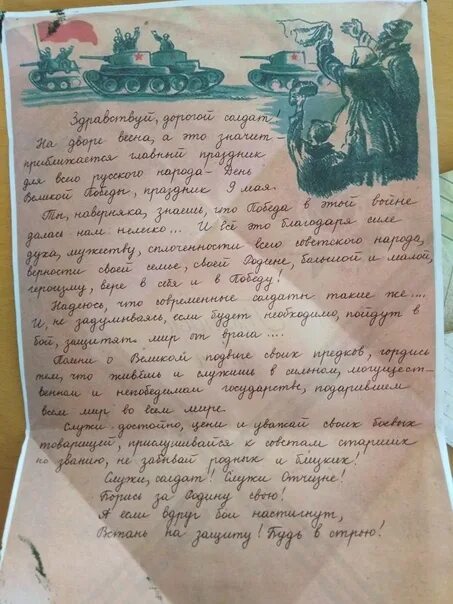 Здравствуй, дорогой солдат
На дворе весна, а это значит -
приближается главный праздник
для всего русского народа - День
Великой Победы, праздник 9 мая.
Ты, наверняка, знаешь, что Победа в этой войне
далась нам нелегко... И всё это благодаря силе
духа, мужеству, сплоченности всего советского народа,
верности своей семье, своей Родине, большой и малой,
героизму, вере в себя и в Победу!
Надеюсь, что современные солдаты такие же....
И, не задумываясь, если будет необходимо, пойдут в
бой, защитят мир от врага ....
Помни о Великом подвиге своих предков, гордись
тем, что живёшь и служишь в сильном, могущест-
венном и непобедимом государстве, подарившем
всем мир во всем мире.
Служи достойно, цени и уважай своих боевых
товарищей, прислушивайся к советам старших
по званию, не забывай родных и близких!
Служи, солдат! Служи Отчизне!
Борись за Родину свою!
А если вдруг бои настигнут,
Встань на защиту! Будь в строю!